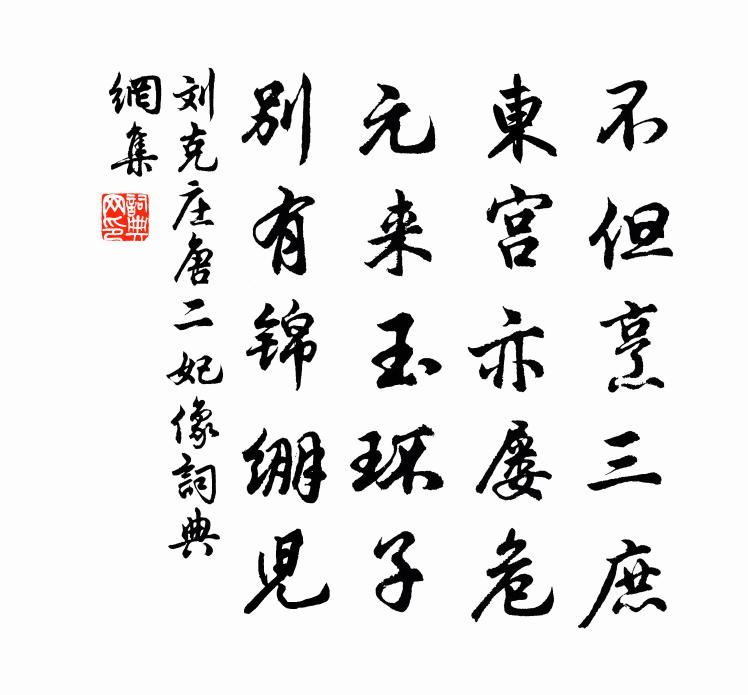 不但烹三庶
東宮亦屡危
元来玉环子
別有锦绷児
刘克庄唐二妃像詞典
網集
詞典网印